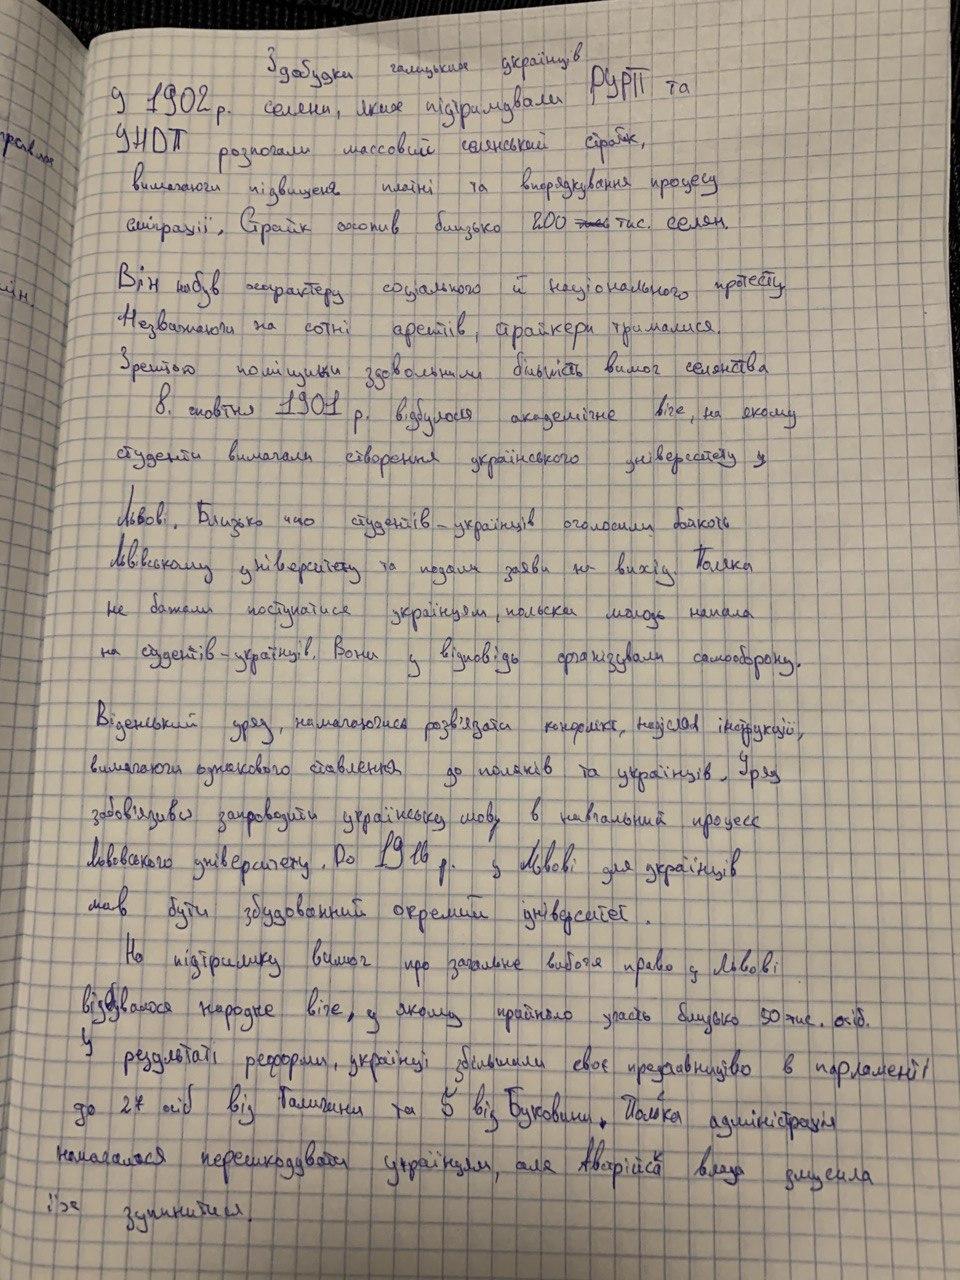 Здобудки галицьких українців
У 1902 р. селяни, яких підтримували РУРП та
УНДП розпочали массовий селянський страйк,
вимагаючи підвищеня платні та впорядкування процесу
еміграції. Страйк охопив близько 200 тис. селян.
Він набув характеру соціального й національного протесту
Незважаючи на сотні арештів, страйкери трималися.
Зрештою поміщики здовольнили більшість вимог селянства
8. жовтня 1901 р. відбулося академічне віче, на якому
студенти вимагали створення українського університету у
Львові. Близько студентів-українців оголосили бойкот
Львівському університету та подали заяви на вихід. Поляки
не бажали поступатися українцям, польська молодь напала
на студентів-українців. Вони у відповідь організували самооборону.
Віденський уряд, намагаючися розв'язати конфлікт, надіслав інструкції,
вимагаючи однакового ставлення до поляків та українців. Уряд
зобов'язився запроводити українську мову в навчальний процесс
Львовського університету. До 1916 р. у Львові для українців
мав бути збудованний окремий університет.
На підтримку вимог про загальне виборче право у Львові
відбувалося народне віче, у якому прийняло участь близько 50 тис. осіб.
У результаті реформи, українці збільшили своє представництво в парламенті
до 27 осіб від Галичини та 5 від Буковини. адміністрація
намагалася перешкодувати українцям, але влада змусила
їх зупинитися.